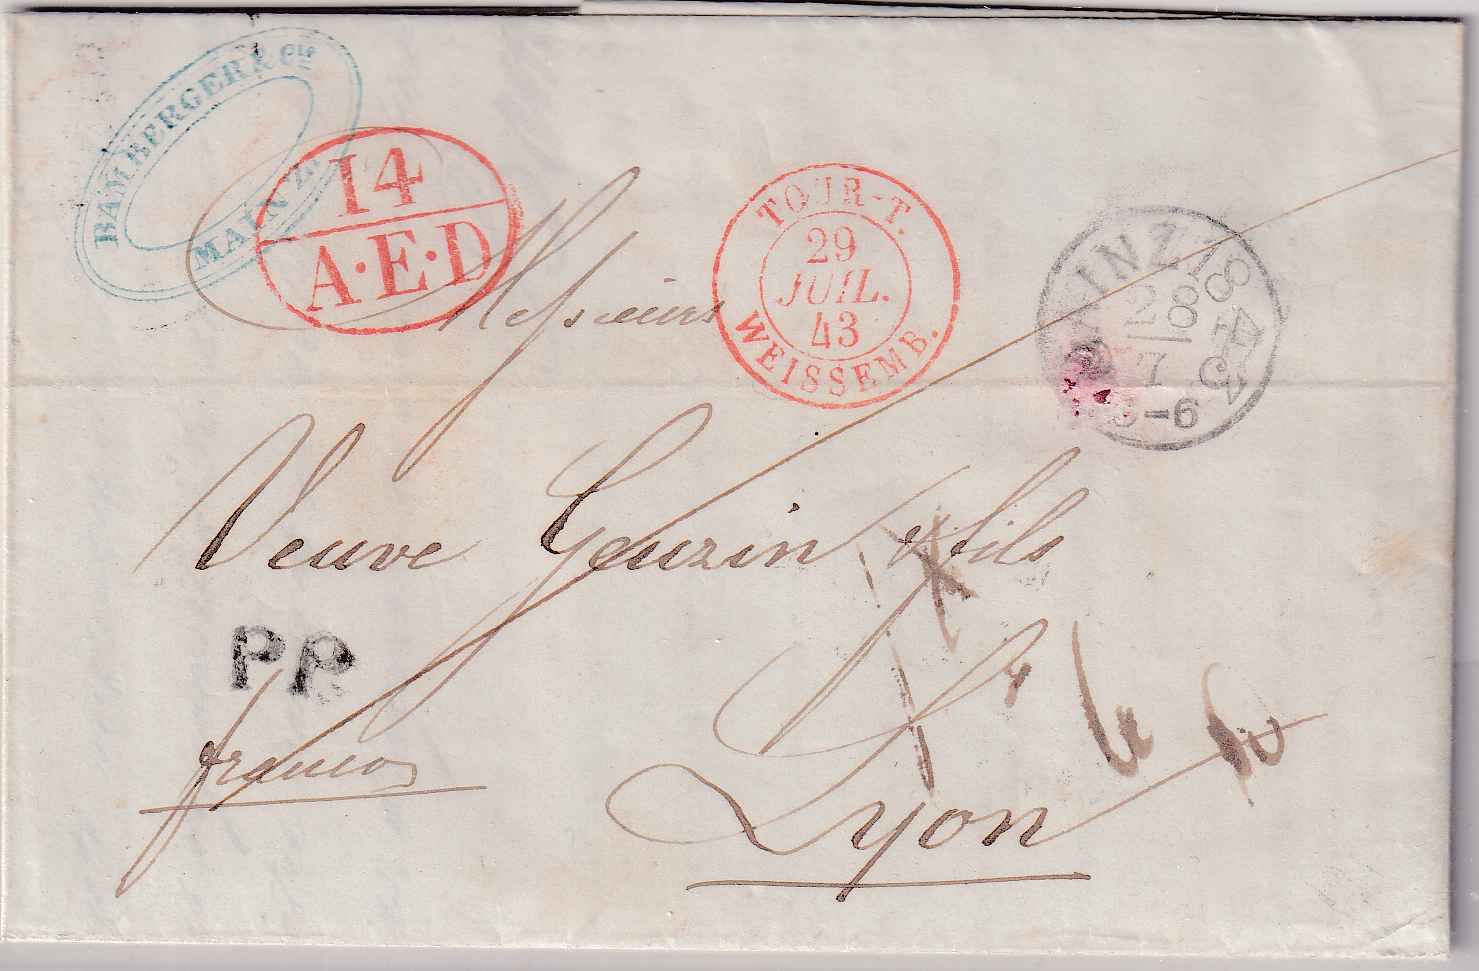 BAMBERGER & Cie
MAINZ.
14
A·E·D
TOUR-T.
29
JUIL.
43
WEISSEMB.
MAINZ 1843
28
7
5-6
Messieurs
Veuve Geuzin & fils
PP
franco
Lyon